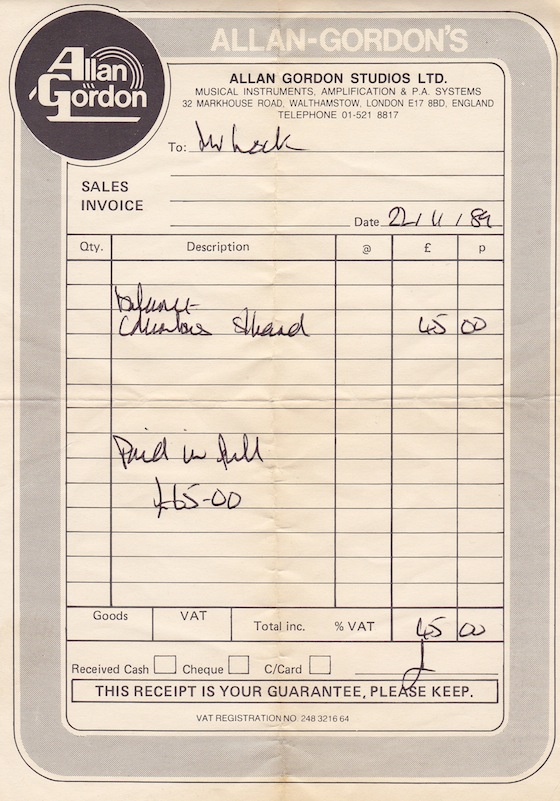 ALLAN-GORDON'S
Allan Gordon
ALLAN GORDON STUDIOS LTD.
MUSICAL INSTRUMENTS, AMPLIFICATION & P.A. SYSTEMS
32 MARKHOUSE ROAD, WALTHAMSTOW, LONDON E17 8BD, ENGLAND
TELEPHONE 01-521 8817
To: Mr Lock
SALES
INVOICE
Date 22/11/89
Qty. Description @ £ p
Balance-
Columbus S/hand 45 00
Paid in full
£65-00
Goods VAT Total inc. % VAT 45 00
Received Cash Cheque C/Card
THIS RECEIPT IS YOUR GUARANTEE, PLEASE KEEP.
VAT REGISTRATION NO. 248 3216 64